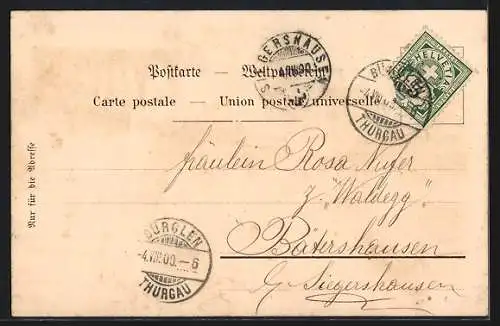 SIGERSHAUSEN
Postkarte — Weltpostverein
Carte postale — Union postale universelle
HELVETIA
THURGAU
Nur für die Adresse
Fräulein Rosa Nufer
z. "Waldegg"
Bätershausen
b/ Siegershausen
BÜRGLEN
-4.VIII.00.-6
THURGAU